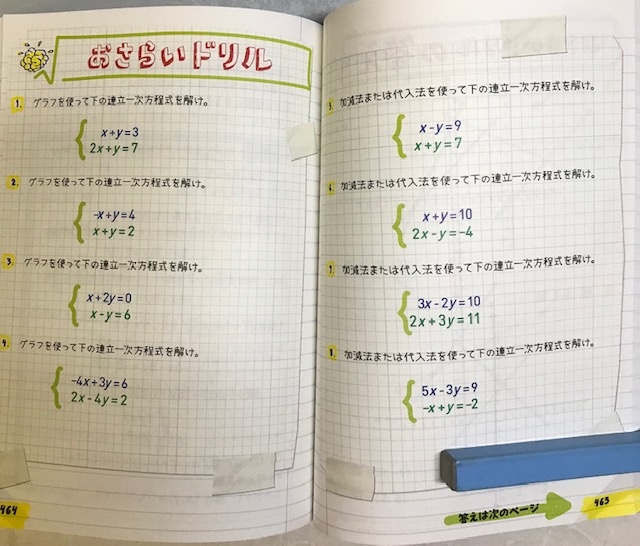 おさらいドリル
1. グラフを使って下の連立一次方程式を解け。
x+y=3
2x+y=7
2. グラフを使って下の連立一次方程式を解け。
-x+y=4
x+y=2
3. グラフを使って下の連立一次方程式を解け。
x+2y=0
x-y=6
4. グラフを使って下の連立一次方程式を解け。
-4x+3y=6
2x-4y=2
464
5. 加減法または代入法を使って下の連立一次方程式を解け。
x-y=9
x+y=7
6. 加減法または代入法を使って下の連立一次方程式を解け。
x+y=10
2x-y=-4
7. 加減法または代入法を使って下の連立一次方程式を解け。
3x-2y=10
2x+3y=11
8. 加減法または代入法を使って下の連立一次方程式を解け。
5x-3y=9
-x+y=-2
答えは次のページ
465